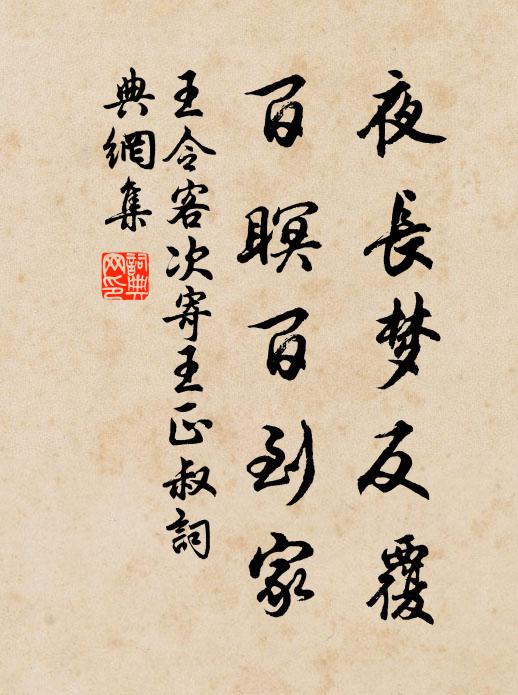 夜長梦反覆
百瞑百到家
王令客次寄王正叔詞
典網集
詞典
网印